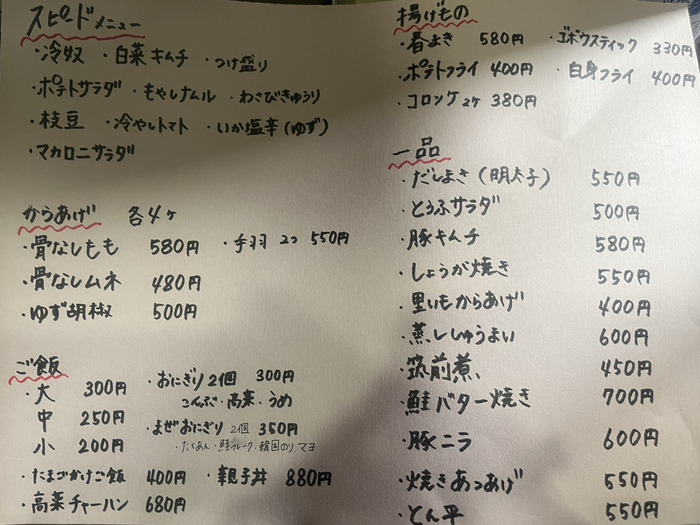 スピードメニュー
・冷奴 ・白菜キムチ ・つけ盛り
・ポテトサラダ ・もやしナムル ・わさびきゅうり
・枝豆 ・冷やしトマト ・いか塩辛(ゆず)
・マカロニサラダ
からあげ 各4ヶ
・骨なしもも 580円 ・手羽 2コ 550円
・骨なしムネ 480円
・ゆず胡椒 500円
ご飯
・大 300円
中 250円
小 200円
・おにぎり2個 300円
こんぶ・高菜・うめ
・まぜおにぎり 2個 350円
・たくあん・鮭フレーク・韓国のりマヨ
・たまごかけご飯 400円 ・親子丼 880円
・高菜チャーハン 680円
揚げもの
・春まき 580円 ・ゴボウスティック 330円
・ポテトフライ 400円 ・白身フライ 400円
・コロッケ2ヶ 380円
一品
・だしまき(明太子) 550円
・とうふサラダ 500円
・豚キムチ 580円
・しょうが焼き 550円
・里いもからあげ 400円
・蒸ししゅうまい 600円
・筑前煮 450円
・鮭バター焼き 700円
・豚ニラ 600円
・焼きあつあげ 550円
・とん平 550円